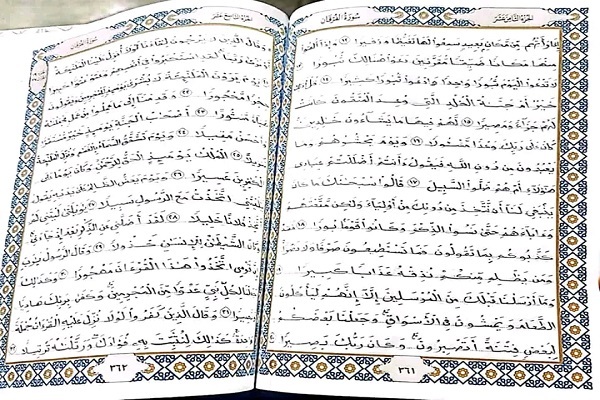 الجزء الثامن عشر
سورة الفرقان
إِذَا رَأَتْهُم مِّن مَّكَانٍ بَعِيدٍ سَمِعُوا لَهَا تَغَيُّظًا وَزَفِيرًا ١٢ وَإِذَا أُلْقُوا
مِنْهَا مَكَانًا ضَيِّقًا مُّقَرَّنِينَ دَعَوْا هُنَالِكَ ثُبُورًا ١٣
لَّا تَدْعُوا الْيَوْمَ ثُبُورًا وَاحِدًا وَادْعُوا ثُبُورًا كَثِيرًا ١٤
خَيْرٌ أَمْ جَنَّةُ الْخُلْدِ الَّتِي وُعِدَ الْمُتَّقُونَ كَانَتْ
لَهُمْ جَزَاءً وَمَصِيرًا ١٥ لَّهُمْ فِيهَا مَا يَشَاءُونَ خَالِدِينَ
كَانَ عَلَى رَبِّكَ وَعْدًا مَّسْئُولًا ١٦ وَيَوْمَ يَحْشُرُهُمْ وَمَا
يَعْبُدُونَ مِن دُونِ اللَّهِ فَيَقُولُ ءَأَنتُمْ أَضْلَلْتُمْ عِبَادِي
هَٰؤُلَاءِ أَمْ هُمْ ضَلُّوا السَّبِيلَ ١٧ قَالُوا سُبْحَانَكَ مَا كَانَ
يَنبَغِي لَنَا أَن نَّتَّخِذَ مِن دُونِكَ مِنْ أَوْلِيَاءَ وَلَٰكِن مَّتَّعْتَهُمْ
وَءَابَاءَهُمْ حَتَّىٰ نَسُوا الذِّكْرَ وَكَانُوا قَوْمًا بُورًا ١٨
كَذَّبُوكُم بِمَا تَقُولُونَ فَمَا تَسْتَطِيعُونَ صَرْفًا وَلَا نَصْرًا
وَمَن يَظْلِم مِّنكُمْ نُذِقْهُ عَذَابًا كَبِيرًا ١٩
وَمَا أَرْسَلْنَا قَبْلَكَ مِنَ الْمُرْسَلِينَ إِلَّا إِنَّهُمْ لَيَأْكُلُونَ
الطَّعَامَ وَيَمْشُونَ فِي الْأَسْوَاقِ وَجَعَلْنَا بَعْضَكُمْ
لِبَعْضٍ فِتْنَةً أَتَصْبِرُونَ وَكَانَ رَبُّكَ بَصِيرًا ٢٠
٣٦١
الجزء التاسع عشر
سورة الفرقان
وَقَالَ الَّذِينَ لَا يَرْجُونَ لِقَاءَنَا لَوْلَا أُنزِلَ عَلَيْنَا الْمَلَائِكَةُ
أَوْ نَرَىٰ رَبَّنَا لَقَدِ اسْتَكْبَرُوا فِي أَنفُسِهِمْ وَعَتَوْ عُتُوًّا كَبِيرًا
يَوْمَ يَرَوْنَ الْمَلَائِكَةَ لَا بُشْرَىٰ يَوْمَئِذٍ لِّلْمُجْرِمِينَ وَيَقُولُونَ
حِجْرًا مَّحْجُورًا ٢٢ وَقَدِمْنَا إِلَىٰ مَا عَمِلُوا مِنْ عَمَلٍ فَجَعَلْنَاهُ
هَبَاءً مَّنثُورًا ٢٣ أَصْحَابُ الْجَنَّةِ يَوْمَئِذٍ خَيْرٌ مُّسْتَقَرًّا
وَأَحْسَنُ مَقِيلًا ٢٤ وَيَوْمَ تَشَقَّقُ السَّمَاءُ بِالْغَمَامِ وَنُزِّلَ الْمَلَائِكَةُ
تَنزِيلًا ٢٥ الْمُلْكُ يَوْمَئِذٍ الْحَقُّ لِلرَّحْمَٰنِ وَكَانَ يَوْمًا عَلَى
الْكَافِرِينَ عَسِيرًا ٢٦ وَيَوْمَ يَعَضُّ الظَّالِمُ عَلَىٰ يَدَيْهِ يَقُولُ
يَالَيْتَنِي اتَّخَذْتُ مَعَ الرَّسُولِ سَبِيلًا ٢٧ يَاوَيْلَتَىٰ لَيْتَنِي
لَمْ أَتَّخِذْ فُلَانًا خَلِيلًا ٢٨ لَّقَدْ أَضَلَّنِي عَنِ الذِّكْرِ بَعْدَ إِذْ جَاءَنِي
وَكَانَ الشَّيْطَانُ لِلْإِنسَانِ خَذُولًا ٢٩ وَقَالَ الرَّسُولُ يَارَبِّ
إِنَّ قَوْمِي اتَّخَذُوا هَٰذَا الْقُرْءَانَ مَهْجُورًا ٣٠ وَكَذَٰلِكَ
جَعَلْنَا لِكُلِّ نَبِيٍّ عَدُوًّا مِّنَ الْمُجْرِمِينَ وَكَفَىٰ بِرَبِّكَ هَادِيًا
وَنَصِيرًا ٣١ وَقَالَ الَّذِينَ كَفَرُوا لَوْلَا نُزِّلَ عَلَيْهِ الْقُرْءَانُ جُمْلَةً
وَاحِدَةً كَذَٰلِكَ لِنُثَبِّتَ بِهِ فُؤَادَكَ وَرَتَّلْنَاهُ تَرْتِيلًا ٣٢
٣٦٢